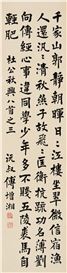 千家山郭静朝暉日日江樓坐翠微信宿漁
人還汎汎清秋燕子故飛飛匡衡抗疏功名薄劉
向傳經心事違同學少年多不賤五陵裘馬自
輕肥　杜公秋興八首之三　沅叔傅增湘